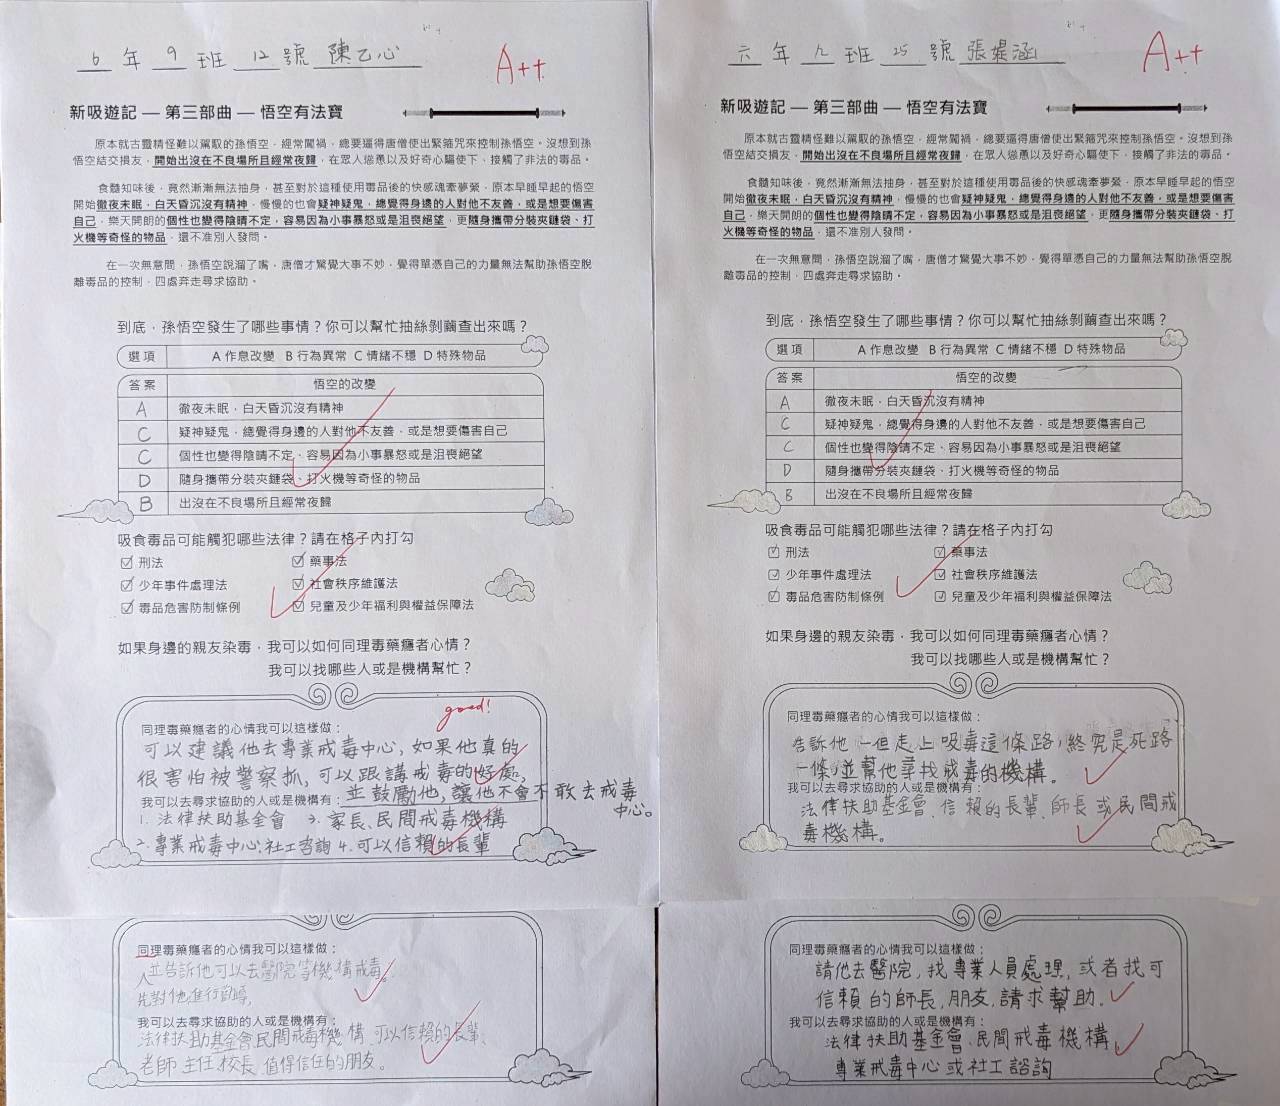 6 年 9 班 12 號 陳乙心
A++
新吸遊記 — 第三部曲 — 悟空有法寶
原本就古靈精怪難以駕馭的孫悟空，經常闖禍，總要逼得唐僧使出緊箍咒來控制孫悟空。沒想到孫
悟空結交損友，開始出沒在不良場所且經常夜歸，在眾人慫恿以及好奇心驅使下，接觸了非法的毒品。
食髓知味後，竟然漸漸無法抽身，甚至對於這種使用毒品後的快感魂牽夢縈，原本早睡早起的悟空
開始徹夜未眠，白天昏沉沒有精神，慢慢的也會疑神疑鬼，總覺得身邊的人對他不友善，或是想要傷害
自己，樂天開朗的個性也變得陰晴不定，容易因為小事暴怒或是沮喪絕望，更隨身攜帶分裝夾鏈袋、打
火機等奇怪的物品，還不准別人發問。
在一次無意間，孫悟空說溜了嘴，唐僧才驚覺大事不妙，覺得單憑自己的力量無法幫助孫悟空脫
離毒品的控制，四處奔走尋求協助。
到底，孫悟空發生了哪些事情？你可以幫忙抽絲剝繭查出來嗎？
選項 A 作息改變 B 行為異常 C 情緒不穩 D 特殊物品
答案 悟空的改變
A 徹夜未眠，白天昏沉沒有精神
C 疑神疑鬼，總覺得身邊的人對他不友善，或是想要傷害自己
C 個性也變得陰晴不定、容易因為小事暴怒或是沮喪絕望
D 隨身攜帶分裝夾鏈袋、打火機等奇怪的物品
B 出沒在不良場所且經常夜歸
吸食毒品可能觸犯哪些法律？請在格子內打勾
☑ 刑法 ☑ 藥事法
☑ 少年事件處理法 ☑ 社會秩序維護法
☑ 毒品危害防制條例 ☑ 兒童及少年福利與權益保障法
如果身邊的親友染毒，我可以如何同理毒藥癮者心情？
我可以找哪些人或是機構幫忙？
good!
同理毒藥癮者的心情我可以這樣做：
可以建議他去專業戒毒中心，如果他真的
很害怕被警察抓，可以跟講戒毒的好處，
並鼓勵他，讓他不會不敢去戒毒
中心。
我可以去尋求協助的人或是機構有：
1. 法律扶助基金會 3. 家長、民間戒毒機構
2. 專業戒毒中心，社工咨詢 4. 可以信賴的長輩
六 年 九 班 25 號 張媞涵
A++
新吸遊記 — 第三部曲 — 悟空有法寶
原本就古靈精怪難以駕馭的孫悟空，經常闖禍，總要逼得唐僧使出緊箍咒來控制孫悟空。沒想到孫
悟空結交損友，開始出沒在不良場所且經常夜歸，在眾人慫恿以及好奇心驅使下，接觸了非法的毒品。
食髓知味後，竟然漸漸無法抽身，甚至對於這種使用毒品後的快感魂牽夢縈，原本早睡早起的悟空
開始徹夜未眠，白天昏沉沒有精神，慢慢的也會疑神疑鬼，總覺得身邊的人對他不友善，或是想要傷害
自己，樂天開朗的個性也變得陰晴不定，容易因為小事暴怒或是沮喪絕望，更隨身攜帶分裝夾鏈袋、打
火機等奇怪的物品，還不准別人發問。
在一次無意間，孫悟空說溜了嘴，唐僧才驚覺大事不妙，覺得單憑自己的力量無法幫助孫悟空脫
離毒品的控制，四處奔走尋求協助。
到底，孫悟空發生了哪些事情？你可以幫忙抽絲剝繭查出來嗎？
選項 A 作息改變 B 行為異常 C 情緒不穩 D 特殊物品
答案 悟空的改變
A 徹夜未眠，白天昏沉沒有精神
C 疑神疑鬼，總覺得身邊的人對他不友善，或是想要傷害自己
C 個性也變得陰晴不定、容易因為小事暴怒或是沮喪絕望
D 隨身攜帶分裝夾鏈袋、打火機等奇怪的物品
B 出沒在不良場所且經常夜歸
吸食毒品可能觸犯哪些法律？請在格子內打勾
☑ 刑法 ☑ 藥事法
☑ 少年事件處理法 ☑ 社會秩序維護法
☑ 毒品危害防制條例 ☑ 兒童及少年福利與權益保障法
如果身邊的親友染毒，我可以如何同理毒藥癮者心情？
我可以找哪些人或是機構幫忙？
同理毒藥癮者的心情我可以這樣做：
告訴他一但走上吸毒這條路，終究是死路
一條，並幫他尋找戒毒的機構。
我可以去尋求協助的人或是機構有：
法律扶助基金會、信賴的長輩、師長或民間戒
毒機構。
同理毒藥癮者的心情我可以這樣做：
並告訴他可以去醫院等機構戒毒。
先對他進行
我可以去尋求協助的人或是機構有：
法律扶助基金會民間戒毒機構、可以信賴的長輩、
老師 主任 校長 值得信任的朋友。
同理毒藥癮者的心情我可以這樣做：
請他去醫院，找專業人員處理，或者找可
信賴的師長，朋友，請求幫助。
我可以去尋求協助的人或是機構有：
法律扶助基金會、民間戒毒機構，
專業戒毒中心或社工諮詢